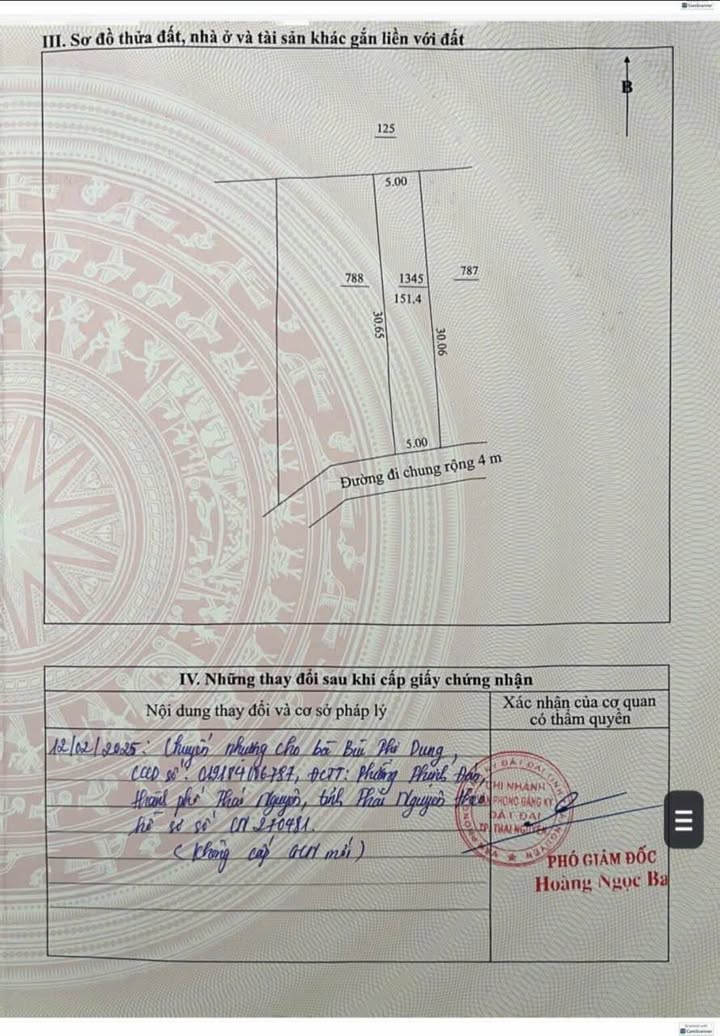 CamScanner
III. Sơ đồ thửa đất, nhà ở và tài sản khác gắn liền với đất
B
125
5.00
788
1345
787
151.4
30.65
30.06
5.00
Đường đi chung rộng 4 m
IV. Những thay đổi sau khi cấp giấy chứng nhận
Nội dung thay đổi và cơ sở pháp lý
Xác nhận của cơ quan
có thẩm quyền
12/02/2025: Chuyển nhượng cho bà Bùi Dung,
CCCD số: ĐCTT: Phường Phan Đình
thành phố Thái Nguyên, tỉnh Thái Nguyên theo
hồ sơ số 270481.
(Không cấp GCN mới)
CHI NHÁNH
VĂN PHÒNG ĐĂNG KÝ
ĐẤT ĐAI
TP. THÁI NGUYÊN
PHÓ GIÁM ĐỐC
Hoàng Ngọc Ba
CamScanner